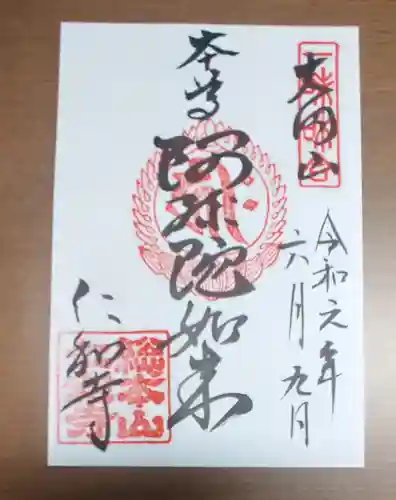 大内山
令和元年
六月九日
本尊
阿弥陀如来
仁和寺
総本山